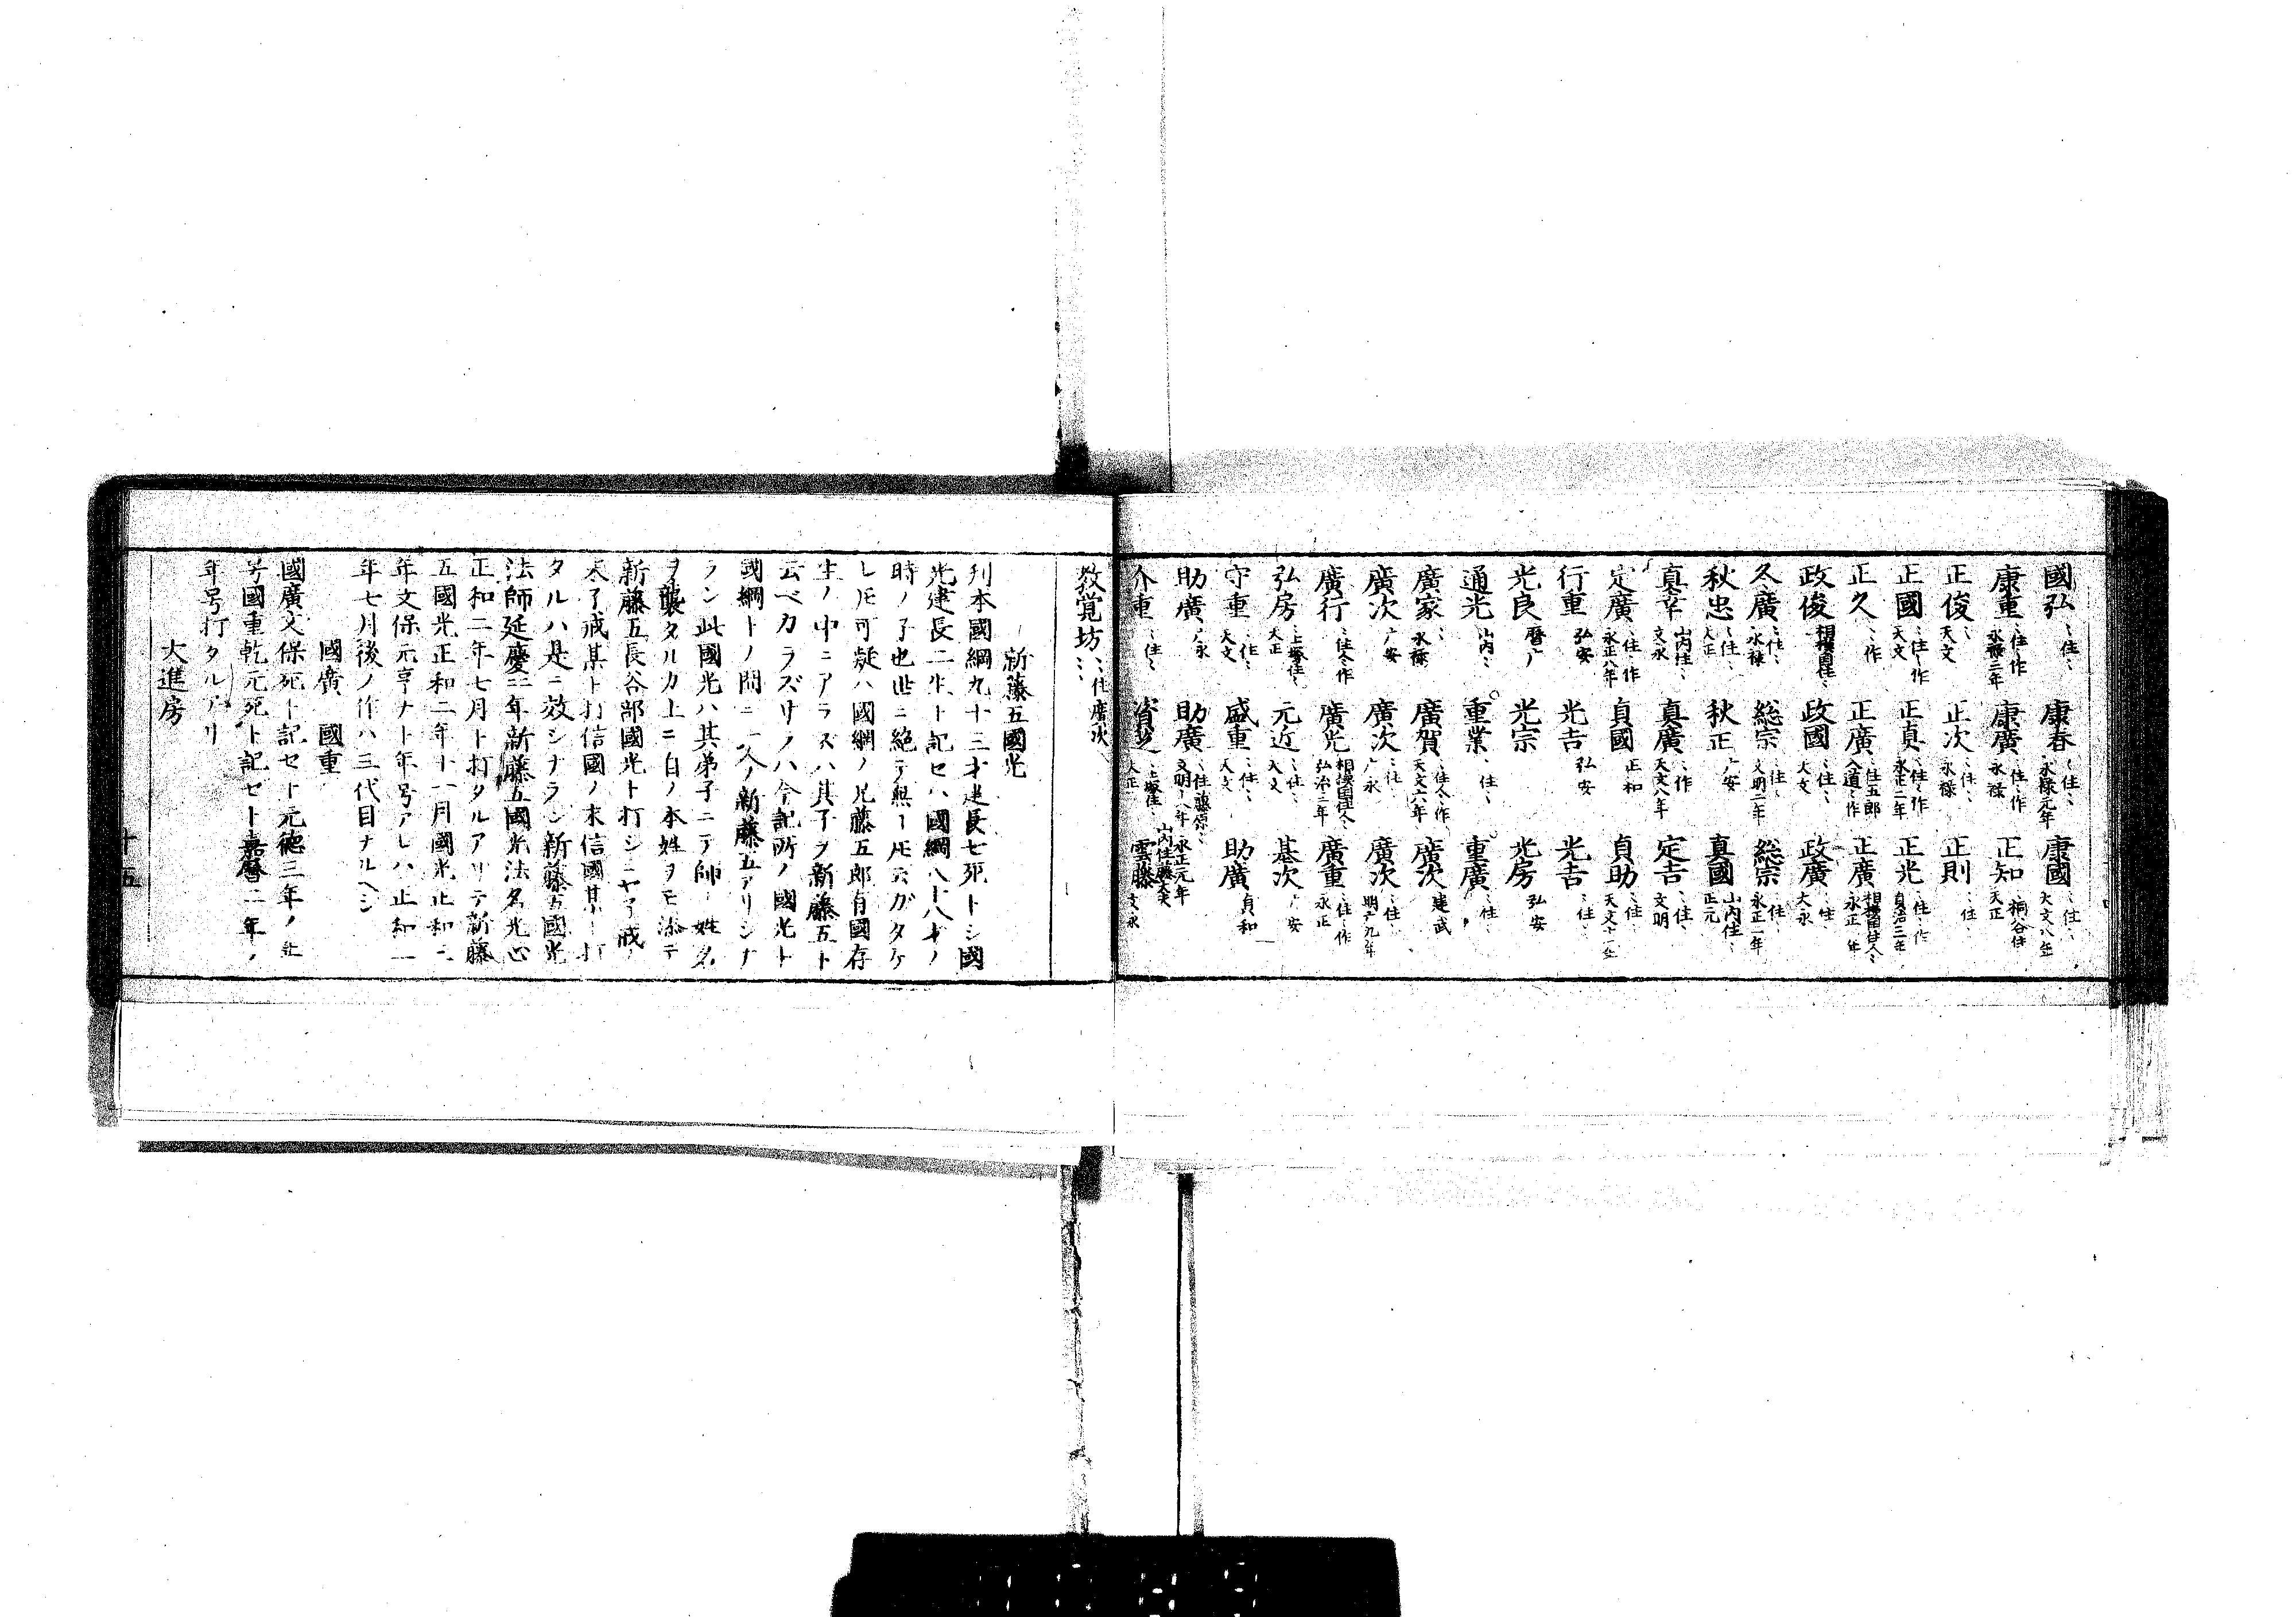 國弘 〻住〻 康春 〻住〻 永禄元年 康國 〻住〻 天文八年
康重 〻住〻作 永禄二年 康廣 〻住〻作 永禄 正知 〻桐谷住 天正
正俊 〻 天文 正次 〻住〻 永禄 正則 〻住
正國 〻住〻作 天文 正真 〻住〻作 永正二年 正光 〻住〻作 貞治三年
正久 〻〻作 正廣 〻住五郎 入道〻作 正廣 相模国住人〻 永正 年
政俊 相模国住〻 政國 〻住〻 大文 政廣 〻住〻 大永
久廣 〻住〻 永禄 総宗 〻住〻 文明二年 総宗 〻住〻 永正一年
秋忠 〻住〻 天正 秋正 广安 真國 山内住〻 正元
真幸 山内住〻 文永 真廣 〻作 天文八年 定吉 〻住〻 文明
定廣 〻住〻作 永正八年 貞國 正和 貞助 〻住〻 天文十一年
行重 弘安 光吉 弘安 光吉 〻住〻
光良 暦广 光宗 光房 弘安
通光 山内〻 重業 〻住〻 重廣 〻住
廣家 〻 永禄 廣賀 〻住人〻作 天文六年 廣次 建武
廣次 广安 廣次 〻住〻 广永 廣次 〻住〻 明广九年
廣行 〻住人〻作 廣光 相模国住人〻 弘治二年 廣重 〻住〻作 永正
弘房 〻上塚住〻 大正 元近 〻住〻 天文 基次 广安
守重 〻住〻 天文 盛重 〻住〻 天文 助廣 貞和
助廣 广永 助廣 〻住藤原〻 文明十八年 永正元年
介重 〻住〻 〻上塚住〻 大正 雲藤 山内住藤太夫 文永
教覚坊 〻〻住廣次 〻〻
新藤五國光
刊本國綱九十三才建長七死トシ國
光建長二生ト記セハ國綱八十八才ノ
時ノ子也世ニ絶テ無ー𪜈云ガタケ
レ𪜈可疑ハ國綱ノ兄藤五郎有國存
生ノ中ニアラズハ其子ヲ新藤五ト
云ベカラズサレハ今記所ノ國光ト
國綱トノ間ニ一人ノ新藤五アリシナ
ラン此國光ハ其弟子ニテ師ノ姓名
ヲ襲タルカ上ニ自ノ本姓ヲモ添テ
新藤五長谷部國光ト打シニヤ了戒ノ
末了戒某ト打信國ノ末信國某ト打
タルハ是ニ效シナラン新藤五國光
法師延慶二年新藤五國光法名光心
正和二年七月ト打タルアリテ新藤
五國光正和二年十一月國光正和三
年文保元亨ナト年号アレハ正和二
年七月後ノ作ハ三代目ナルヘシ
國廣 國重
國廣文保死ト記セト元徳三年ノ年
号國重乾元死ト記セト嘉暦二年ノ
年号打タルアリ
大進房
十五